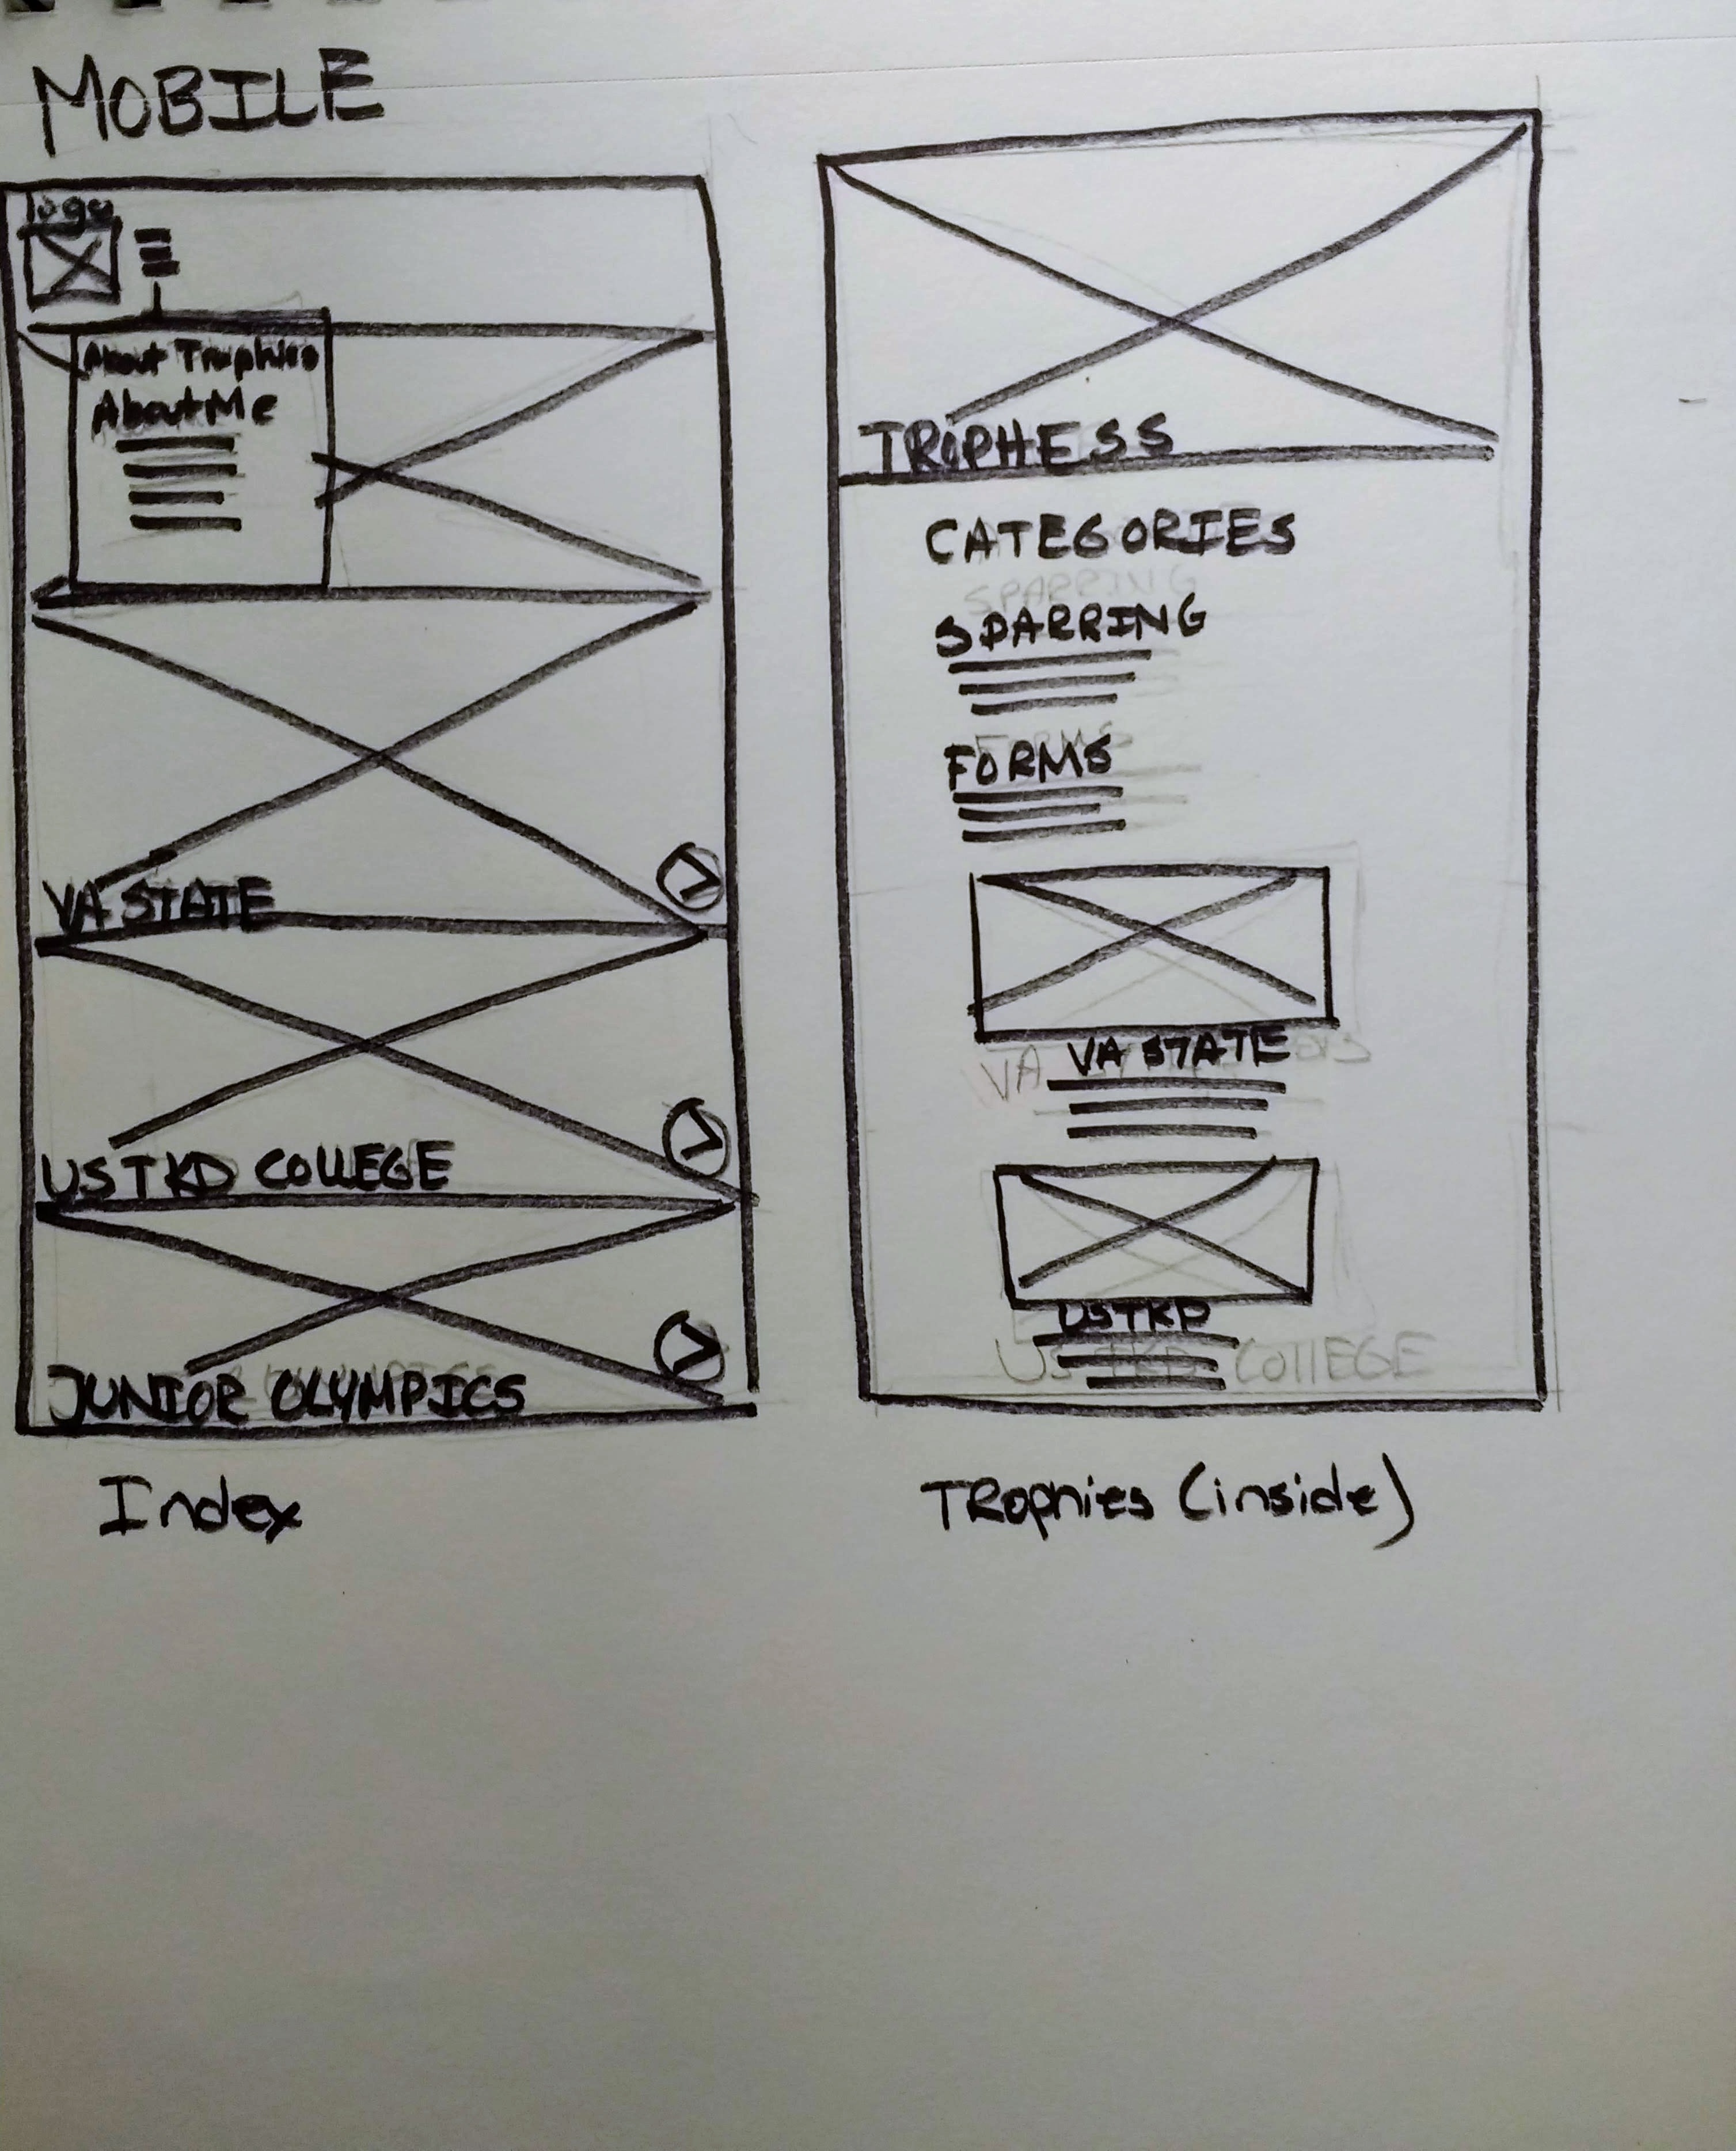 MOBILE
logo
About Trophies
About Me
VA STATE
USTKD COLLEGE
JUNIOR OLYMPICS
Index
TRIPHESS
CATEGORIES
SPARRING
SPARRING
FORMS
FORMS
VA STATE
VA
USTKD
USTKD COllEGE
TRophies (inside)